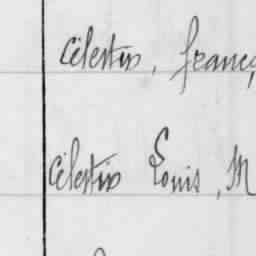 Célestin, franç
Célestin Louis, M